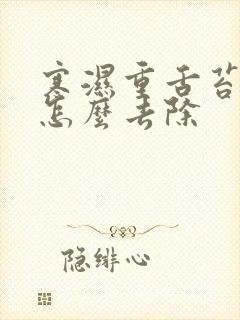 寒濕重舌苔
怎麼去除
隐绯心